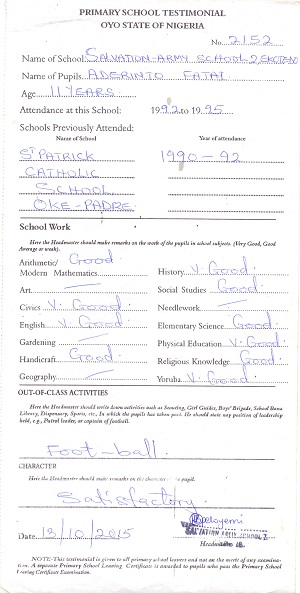 PRIMARY SCHOOL TESTIMONIAL
OYO STATE OF NIGERIA
No. 2152
Name of School SALVATION ARMY SCHOOL 2,
Name of Pupils ADERINTO FATAI
Age 11 YEARS
Attendance at this School: 1992 to 1995
Schools Previously Attended:
Name of School Year of attendance
ST PATRICK 1990 - 92
CATHOLIC
SCHOOL
OKE-PADRE
School Work
Here the Headmaster should make remarks on the work of the pupils in school subjects. (Very Good, Good
Average or weak).
Arithmetic/
Modern Mathematics Good
History V. Good
Art —
Social Studies Good
Civics V. Good
Needlework —
English V. Good
Elementary Science Good
Gardening —
Physical Education V. Good
Handicraft Good
Religious Knowledge Good
Geography —
Yoruba V. Good
OUT-OF-CLASS ACTIVITIES
Here the Headmaster should write down activities such as Scouting, Girl Guides, Boys' Brigade, School Band
Library, Dispensary, Sports, etc., in which the pupils has taken part. He should state any position of leadership
held, e.g., Patrol leader, or captain of football.
Foot-ball
CHARACTER
Here the Headmaster should make remarks on the character of the pupil.
Satisfactory
Date 13/10/2015
SALVATION ARMY SCHOOL 2
Headmaster
NOTE: This testimonial is given to all primary school leavers and not on the merit of any examina-
tion. A separate Primary School Leaving Certificate is awarded to pupils who pass the Primary School
Leaving Certificate Examination.